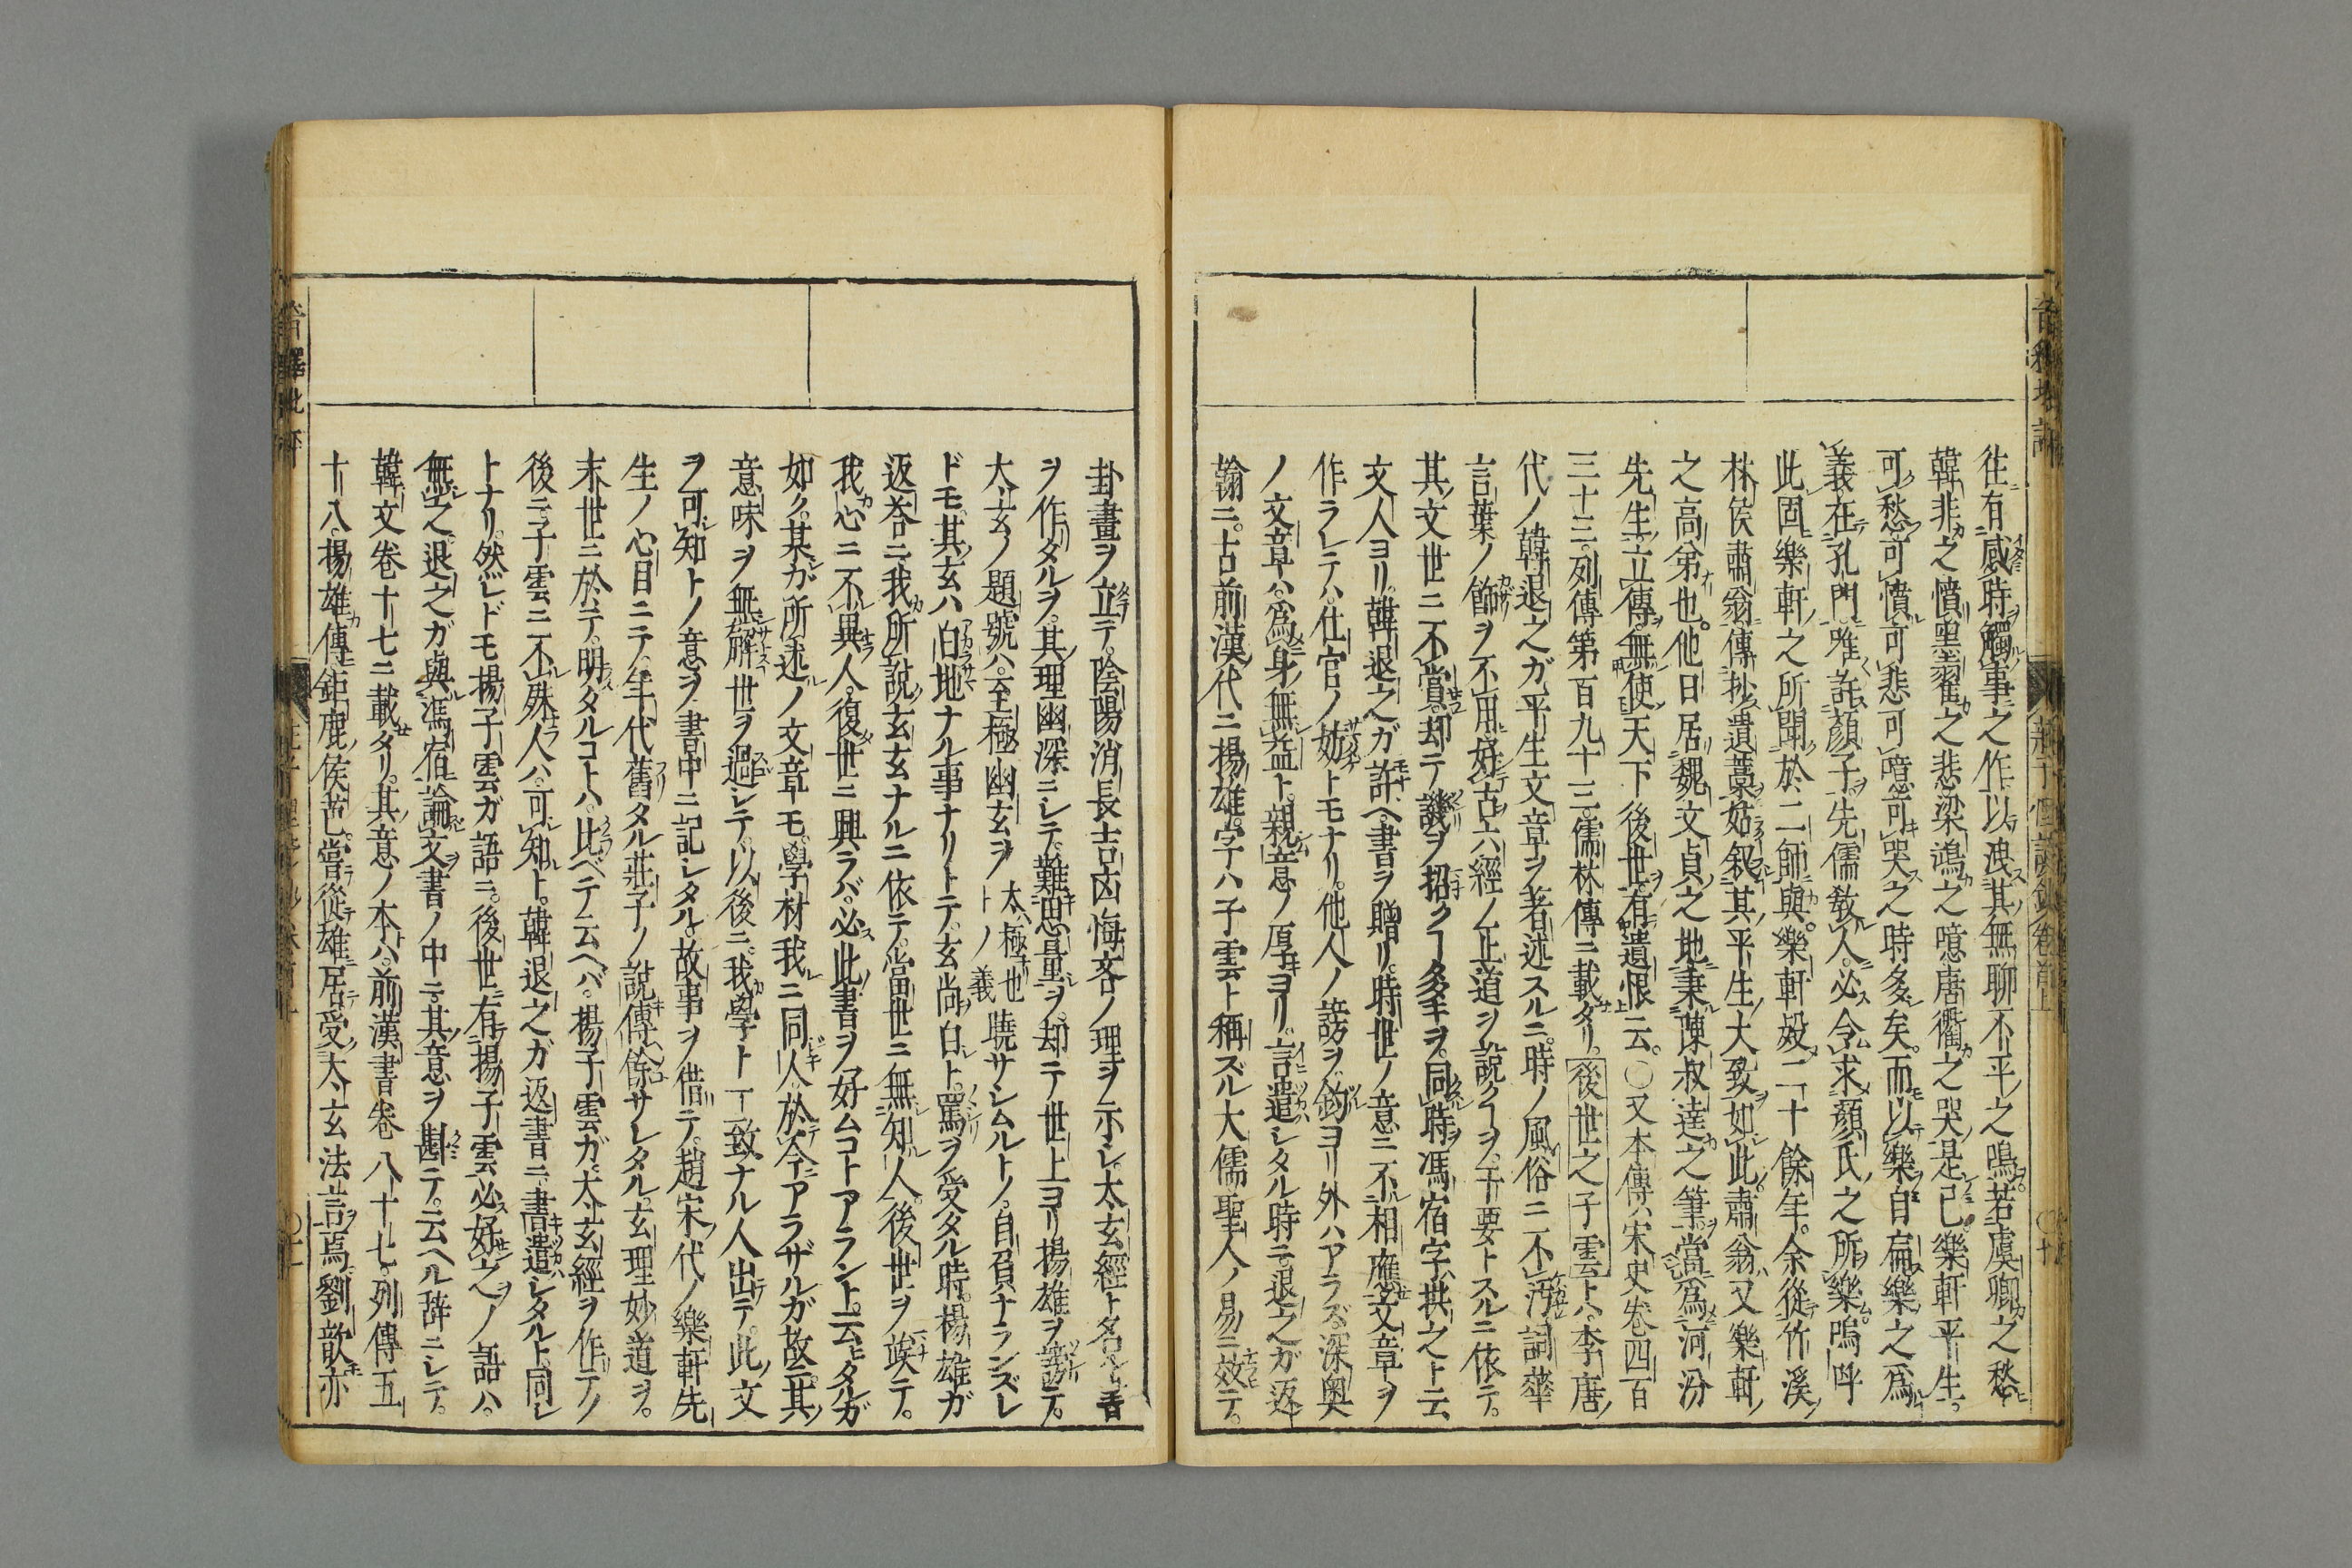 往有感時觸事之作以洩其無聊不平之鳴若虞卿之愁
韓非之憤墨翟之悲梁鴻之噫唐衢之哭是已樂軒平生
可愁可憤可悲可噫可哭之時多矣而以樂自扁樂之爲
義在孔門唯許顏子先儒敎人必令求顏氏之所樂嗚呼
此固樂軒之所聞於二師與樂軒歿二十餘年余從竹溪
林侯肅翁傳抄遺藁姑叙其平生大致如此肅翁又樂軒
之高弟也他日居魏文貞之地秉陳叔達之筆當爲河汾
先生立傳無使天下後世有遺恨云○又本傳ハ宋史卷四百
三十三列傳第百九十三儒林傳ニ載タリ後世之子雲トハ李唐
代ノ韓退之ガ平生文章ヲ著述スルニ時ノ風俗ニ不汚詞華
言葉ノ飾ヲ不用好古六經ノ正道ヲ說クヿヲ干要トスルニ依テ
其文世ニ不賞却テ譏ヲ招クヿ多キヲ同時馮宿字ハ拱之ト云
文人ヨリ韓退之ガ許ヘ書ヲ贈リ時世ノ意ニ不相應文章ヲ
作ラレテハ仕官ノ妨トモナリ他人ノ謗ヲ釣ヨリ外ハアラズ深奥
ノ文章ハ爲身無益ト親意ノ厚ヨリ言遣シタル時ニ退之ガ返
翰ニ古前漢ノ代ニ揚雄字ハ子雲ト稱ズル大儒聖人ノ易ニ效テ
卦畫ヲ立テ陰陽消長吉凶悔吝ノ理ヲ示シ太玄經ト名ク書
ヲ作タルヲ其理幽深ニシテ難思量ヲ却テ世上ヨリ揚雄ヲ謗テ
大玄ノ題號ハ至極幽玄ヲ太ハ極也トノ義曉サシムルトノ自負ナランズレ
ドモ其玄ハ白地ナル事ナリトテ玄尚白ト罵ヲ受タル時楊雄ガ
返荅ニ我所說玄玄ナルニ依テ當世ニ無知人後世ヲ竢テ
我心ニ不異人復世ニ興ラバ必此書ヲ好ムコトアラント云ヒタルガ
如ク某ガ所述ノ文章モ學材我ニ同人於今アラザルガ故ニ其
意味ヲ無解世ヲ過シテ以後ニ我學ト一致ナル人出テ此文
ヲ可知トノ意ヲ書中ニ記シタル故事ヲ借テ趙宋代ノ樂軒先
生ノ心目ニテ年代舊タル莊子ノ說傳餘サレタル玄理妙道ヲ
末世ニ於テ明タルコトハ比ベテ云ヘバ楊子雲ガ大玄經ヲ作テノ
後ニ子雲ニ不殊人ハ可知ト韓退之ガ返書ニ書遣シタルト同シ
トナリ然レドモ揚子雲ガ語ニ後世有揚子雲必好之ノ語ハ
無之退之ガ與馮宿論文書ノ中ニ其意ヲ斟テ云ヘル辞ニシテ
韓文卷十七ニ載タリ其意ノ本ハ前漢書卷八十七列傳五
十八揚雄傳鉅鹿侯芭當從雄居受大玄法言焉劉歆亦